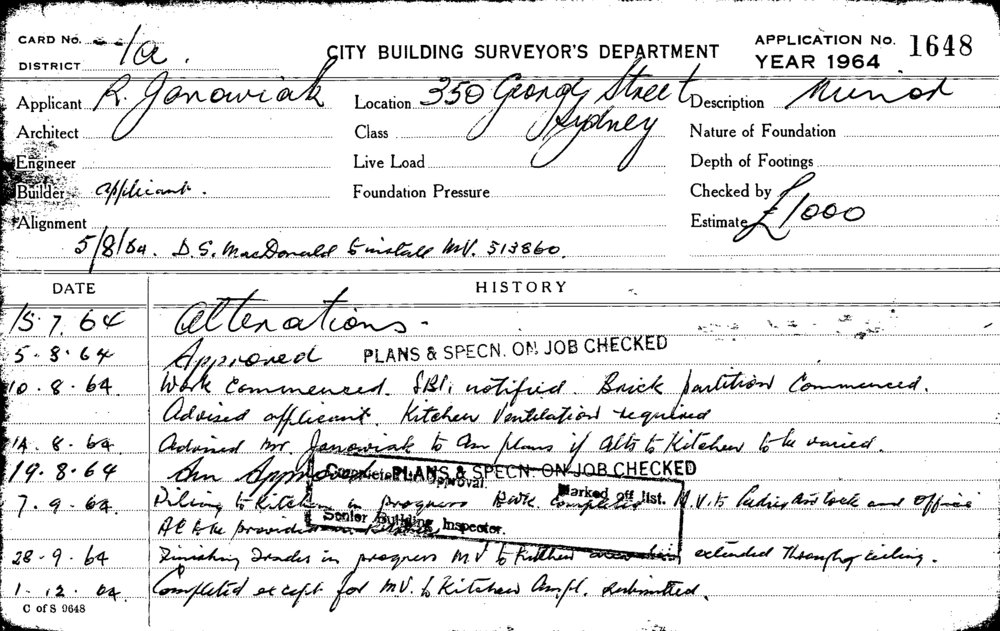 CARD No. 1a. CITY BUILDING SURVEYOR'S DEPARTMENT APPLICATION No. 1648
DISTRICT YEAR 1964
Applicant R. Janowiak Location 350 George Street Sydney Description Minor
Architect Class Nature of Foundation
Engineer Live Load Depth of Footings
Builder applicant. Foundation Pressure Checked by
Alignment Estimate £1000
5/8/64. D.S. MacDonald to install M.V. 513860.
DATE HISTORY
15.7.64 Alterations.
5.8.64 Approved PLANS & SPECN. ON JOB CHECKED
10.8.64 Work Commenced. notified Brick partition Commenced.
Advised applicant. Kitchen Ventilation required
14.8.64 Advised Mr Janowiak to Am plans if alts to Kitchen to be varied.
19.8.64 Am Approved PLANS & SPECN. ON JOB CHECKED
Completed Approval.
7.9.64 Tiling to Kitchen in progress Bwk. Completed M.V. to Ladies and office
Marked off list.
to be provided
Senior Building Inspector.
28.9.64 Finishing Trades in progress M V to Kitchen extended through ceiling.
1.12.64 Completed except for M.V. to Kitchen Am submitted.
C of S 9648